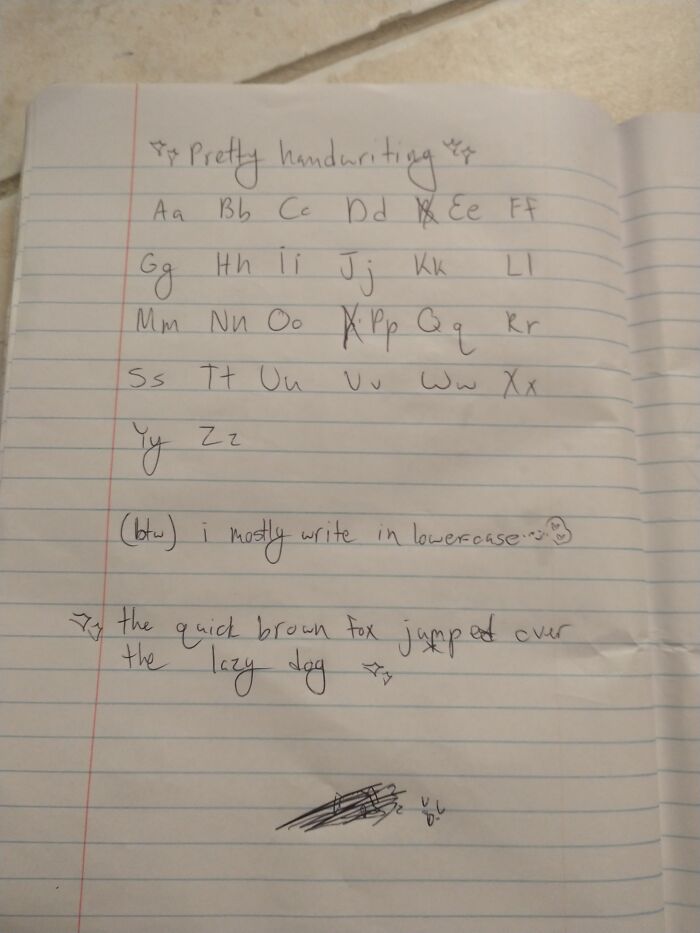 Pretty handwriting
Aa Bb Cc Dd Ee Ff
Gg Hh Ii Jj Kk Ll
Mm Nn Oo Pp Qq Rr
Ss Tt Uu Vv Ww Xx
Yy Zz
(btw) i mostly write in lowercase
the quick brown fox jumped over
the lazy dog